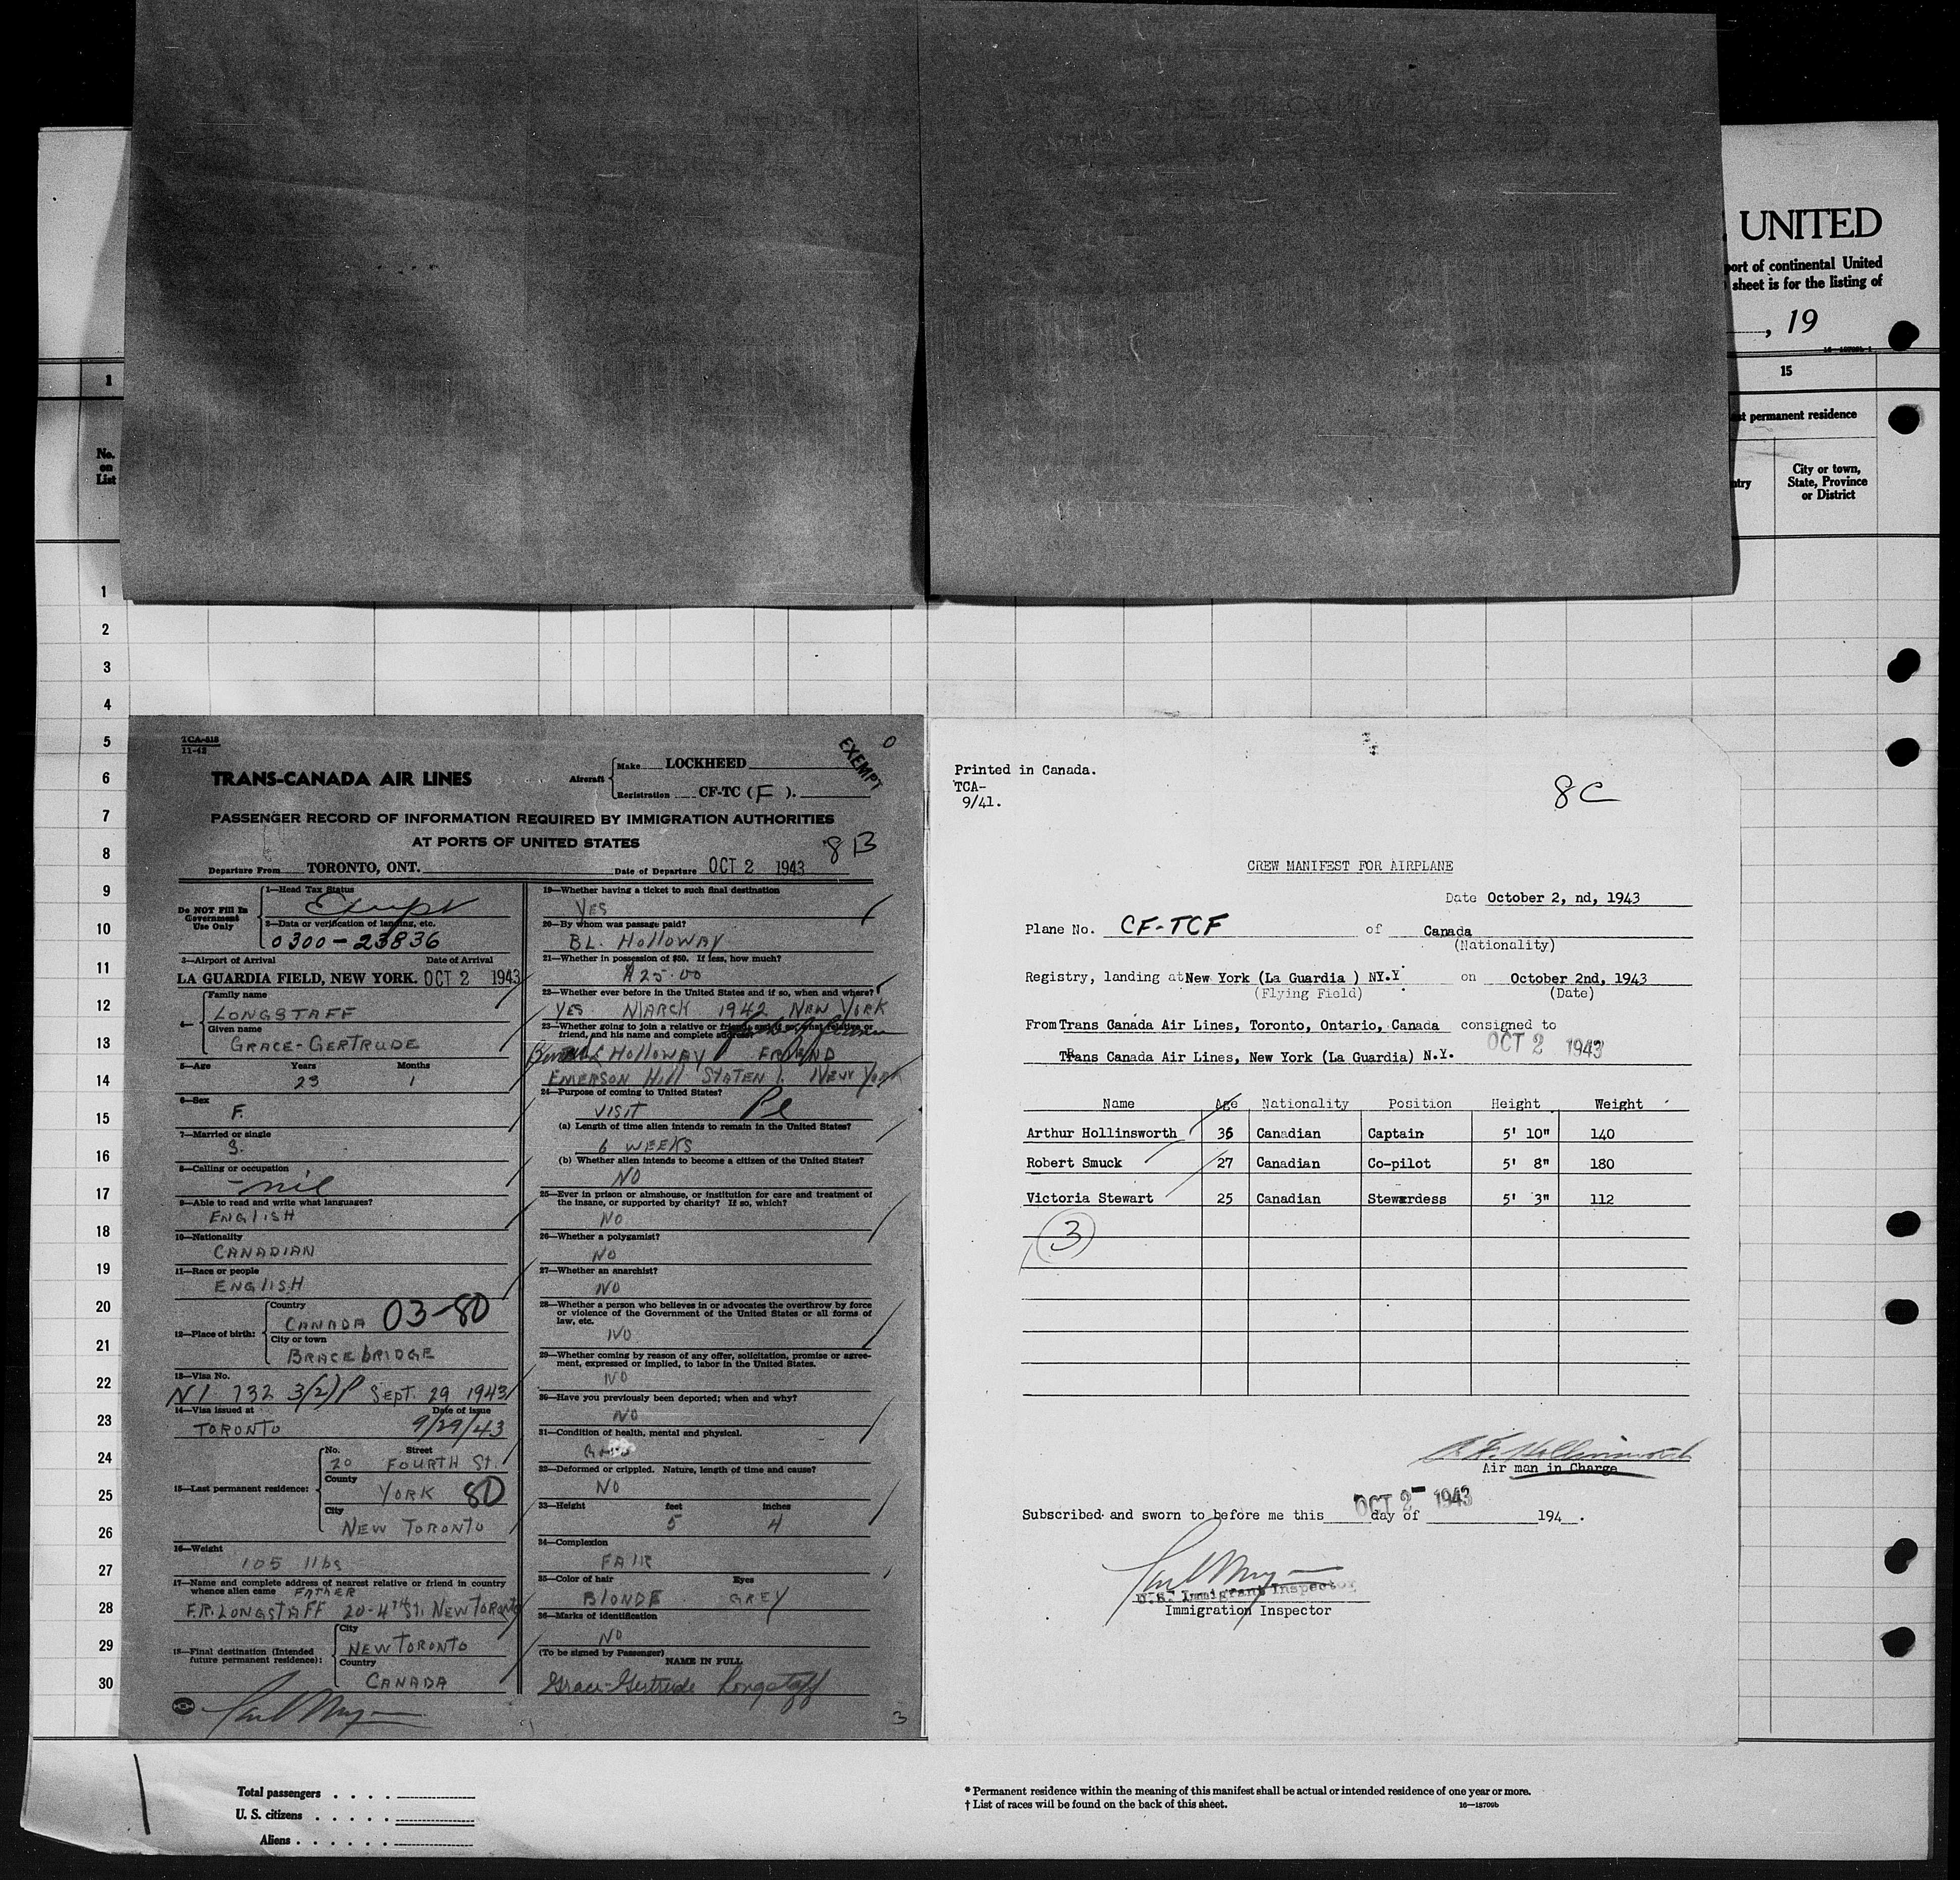 UNITED
port of continental United
sheet is for the listing of
, 19
1
15
permanent residence
No.
on
List
City or town,
State, Province
or District
1
2
3
4
5
6
7
8
9
10
11
12
13
14
15
16
17
18
19
20
21
22
23
24
25
26
27
28
29
30
TCA-818
11-42
EXEMPT
0
TRANS-CANADA AIR LINES
Aircraft
Make LOCKHEED
Registration CF-TC ( F ).
PASSENGER RECORD OF INFORMATION REQUIRED BY IMMIGRATION AUTHORITIES
AT PORTS OF UNITED STATES
8B
Departure From TORONTO, ONT. Date of Departure OCT 2 1943
Do NOT Fill In
Government
Use Only
1—Head Tax Status
Exempt
2—Data or verification of landing, etc.
0300-23836
3—Airport of Arrival Date of Arrival
LA GUARDIA FIELD, NEW YORK. OCT 2 1943
4—
Family name
LONGSTAFF
Given name
GRACE-GERTRUDE
5—Age Years Months
23 1
6—Sex
F.
7—Married or single
S.
8—Calling or occupation
-nil
9—Able to read and write what languages?
ENGLISH
10—Nationality
CANADIAN
11—Race or people
ENGLISH
12—Place of birth:
Country
CANADA 03-80
City or town
BRACEBRIDGE
13—Visa No.
NI 732 3(2)P SEPT. 29 1943
14—Visa issued at Date of issue
TORONTO 9/29/43
15—Last permanent residence:
No. Street
20 FOURTH St.
County
YORK 80
City
NEW TORONTO
16—Weight
105 lbs
17—Name and complete address of nearest relative or friend in country
whence alien came FATHER
F.R. LONGSTAFF 20-4TH St. NEW TORONTO
18—Final destination (Intended
future permanent residence):
City
NEW TORONTO
Country
CANADA
19—Whether having a ticket to such final destination
YES
20—By whom was passage paid?
BL. HOLLOWAY
21—Whether in possession of $50. If less, how much?
$25.00
22—Whether ever before in the United States and if so, when and where?
YES MARCH 1942 NEW YORK
23—Whether going to join a relative or friend; and if so, what relative or
friend, and his name and complete address?
HOLLOWAY FRIEND
EMERSON Hill STATEN I. NEW YORK
24—Purpose of coming to United States?
VISIT Pl
(a) Length of time alien intends to remain in the United States?
6 WEEKS
(b) Whether alien intends to become a citizen of the United States?
NO
25—Ever in prison or almshouse, or institution for care and treatment of
the insane, or supported by charity? If so, which?
NO
26—Whether a polygamist?
NO
27—Whether an anarchist?
NO
28—Whether a person who believes in or advocates the overthrow by force
or violence of the Government of the United States or all forms of
law, etc.
NO
29—Whether coming by reason of any offer, solicitation, promise or agree-
ment, expressed or implied, to labor in the United States.
NO
30—Have you previously been deported; when and why?
NO
31—Condition of health, mental and physical.
32—Deformed or crippled. Nature, length of time and cause?
NO
33—Height feet inches
5 4
34—Complexion
FAIR
35—Color of hair Eyes
BLONDE GREY
36—Marks of identification
NO
(To be signed by Passenger)
NAME IN FULL
Grace-Gertrude Longstaff
3
Printed in Canada.
TCA-
9/41.
8C
CREW MANIFEST FOR AIRPLANE
Date October 2, nd, 1943
Plane No. CF-TCF of Canada
(Nationality)
Registry, landing at New York (La Guardia ) NY.Y on October 2nd, 1943
(Flying Field) (Date)
From Trans Canada Air Lines, Toronto, Ontario, Canada consigned to
TRans Canada Air Lines, New York (La Guardia) N.Y. OCT 2 1943
Name Age Nationality Position Height Weight
Arthur Hollinsworth 36 Canadian Captain 5' 10" 140
Robert Smuck 27 Canadian Co-pilot 5' 8" 180
Victoria Stewart 25 Canadian Stewardess 5' 3" 112
3
Air man in Charge
Subscribed and sworn to before me this OCT 2 1943 day of 194 .
U.S. Immigrant Inspector
Immigration Inspector
Total passengers . . . .
U. S. citizens . . . . .
Aliens . . . . . .
* Permanent residence within the meaning of this manifest shall be actual or intended residence of one year or more.
† List of races will be found on the back of this sheet.
16—18709b